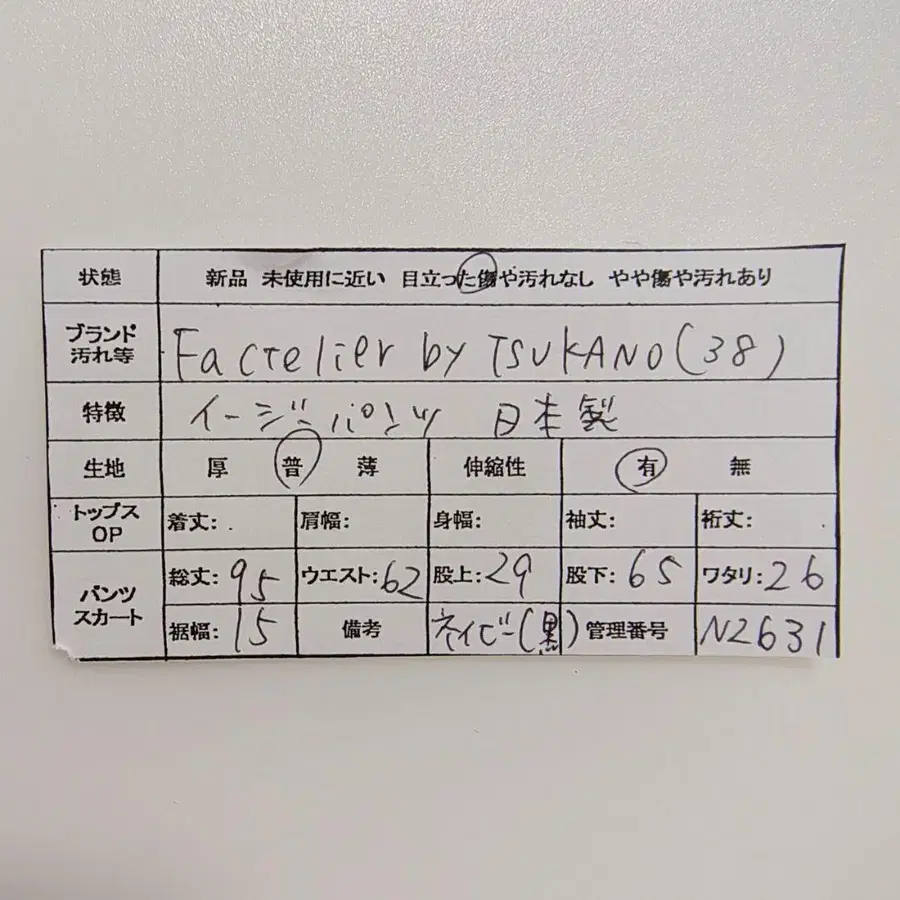 状態 新品 未使用に近い 目立った傷や汚れなし やや傷や汚れあり
ブランド
汚れ等 Factelier by TSUKANO(38)
特徴 イージーパンツ 日本製
生地 厚 普 薄 伸縮性 有 無
トップス
OP 着丈: 肩幅: 身幅: 袖丈: 裄丈:
パンツ
スカート 総丈:95 ウエスト:62 股上:29 股下:65 ワタリ:26
裾幅:15 備考 ネイビー(黒) 管理番号 N2631